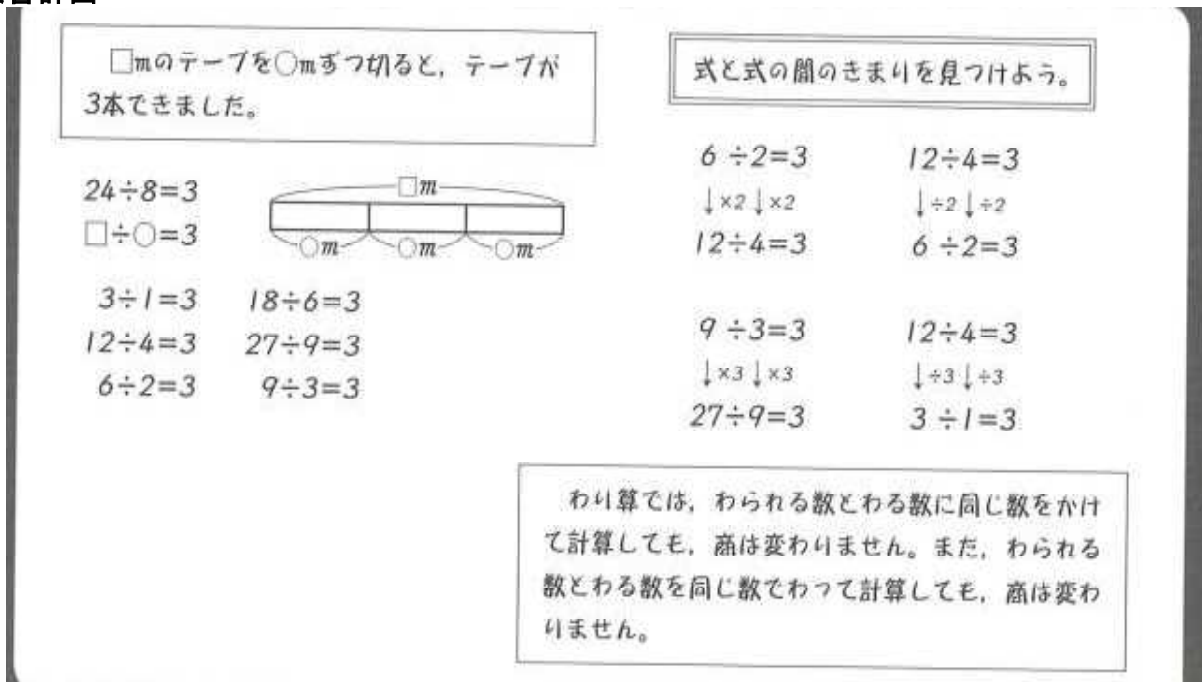 □mのテープを○mずつ切ると，テープが
3本できました。
24÷8=3
□÷○=3
□m
○m ○m ○m
3÷1=3 18÷6=3
12÷4=3 27÷9=3
6÷2=3 9÷3=3
式と式の間のきまりを見つけよう。
6÷2=3 12÷4=3
↓×2↓×2 ↓÷2↓÷2
12÷4=3 6÷2=3
9÷3=3 12÷4=3
↓×3↓×3 ↓÷3↓÷3
27÷9=3 3÷1=3
わり算では，わられる数とわる数に同じ数をかけ
て計算しても，商は変わりません。まだ，わられる
数とわる数を同じ数でわって計算しても，商は変わ
りません。